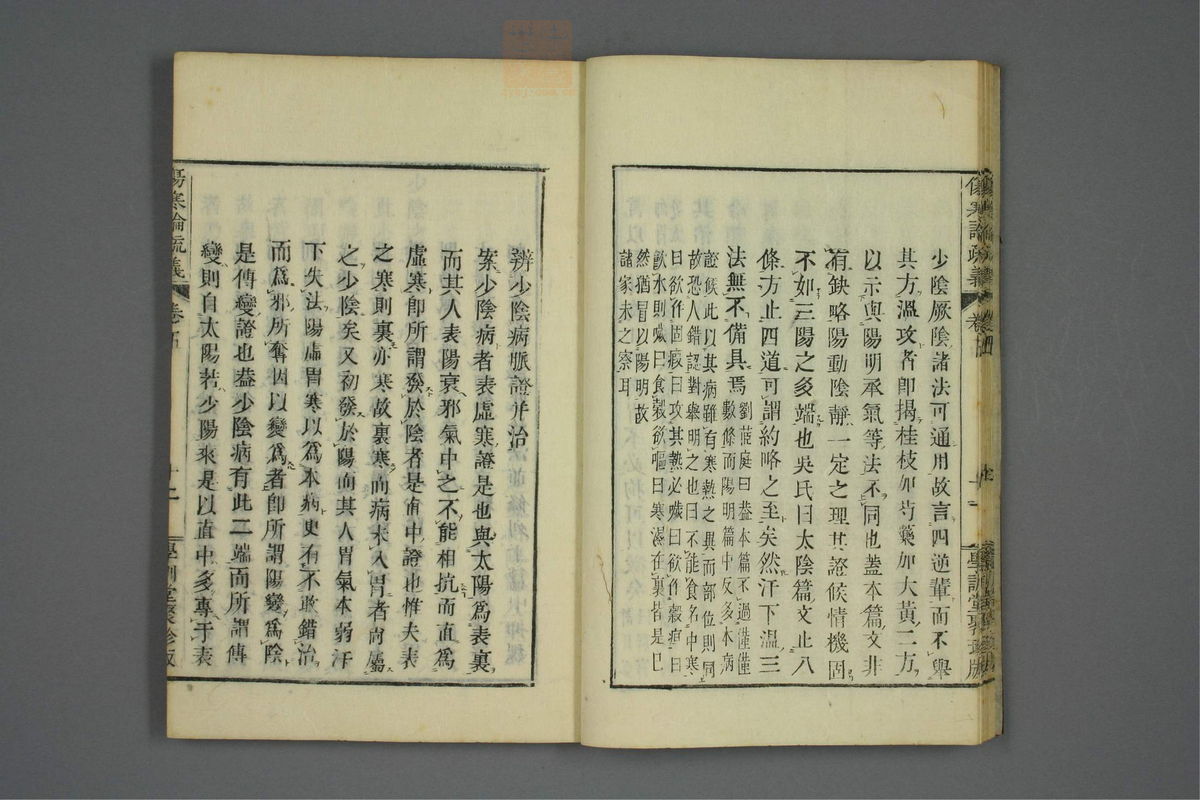 少陰厥陰諸法可通用故言四逆輩而不舉
其方溫攻者即揭桂枝加芍藥加大黃二方
以示與陽明承氣等法不同也蓋本篇文非
有缺略陽動陰靜一定之理其證候情機固
不如三陽之多端也吳氏曰太陰篇文止八
條方止四道可謂約略之至矣然汗下溫三
法無不備具焉劉蓝庭曰蓋本篇不過僅僅
數條而陽明篇中反多本病
證候此以其病雖有寒熱之異而部位則同
故恐人錯認對舉明之也曰不能食名中寒
曰欲作固瘕曰攻其熱必噦曰欲作穀疸曰
飲水則噦曰食穀欲嘔曰寒濕在裏皆是已
然猶冒以陽明故
諸家未之察耳
傷寒論疏義
卷四
學訓堂聚珍版
辨少陰病脈證并治
案少陰病者表虛寒證是也與太陽為表裏
而其人表陽衰邪氣中之不能相抗而直為
虛寒即所謂發於陰者是直中證也惟夫表
之寒則裏亦寒故裏寒而病未入胃者尚屬
之少陰矣又初發於陽而其人胃氣本弱汗
下失法陽虛胃寒以為本病更有不敢錯治
而為邪所奪因以變為者即所謂陽變為陰
是傳變證也蓋少陰病有此二端而所謂傳
變則自太陽若少陽來是以直中多專于表
傷寒論疏義
卷五
學訓堂聚珍版